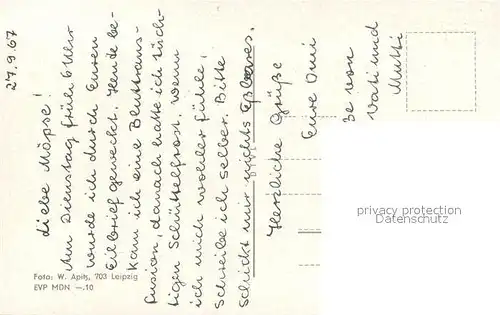 27.9.67
Liebe Möpse!
Am Dienstag früh 6 Uhr
wurde ich durch Euren
Eilbrief geweckt. Heute be-
kam ich eine Bluttrans-
fusion, danach hatte ich tüch-
tigen Schüttelfrost. Wenn
ich mich wohler fühle,
schreibe ich selber. Bitte
schickt mir nichts Eßbares.
Herzliche Grüße
Eure Omi
Be von
Vati und
Mutti
Foto: W. Apitz, 703 Leipzig
EVP MDN —.10
privacy protection
Datenschutz